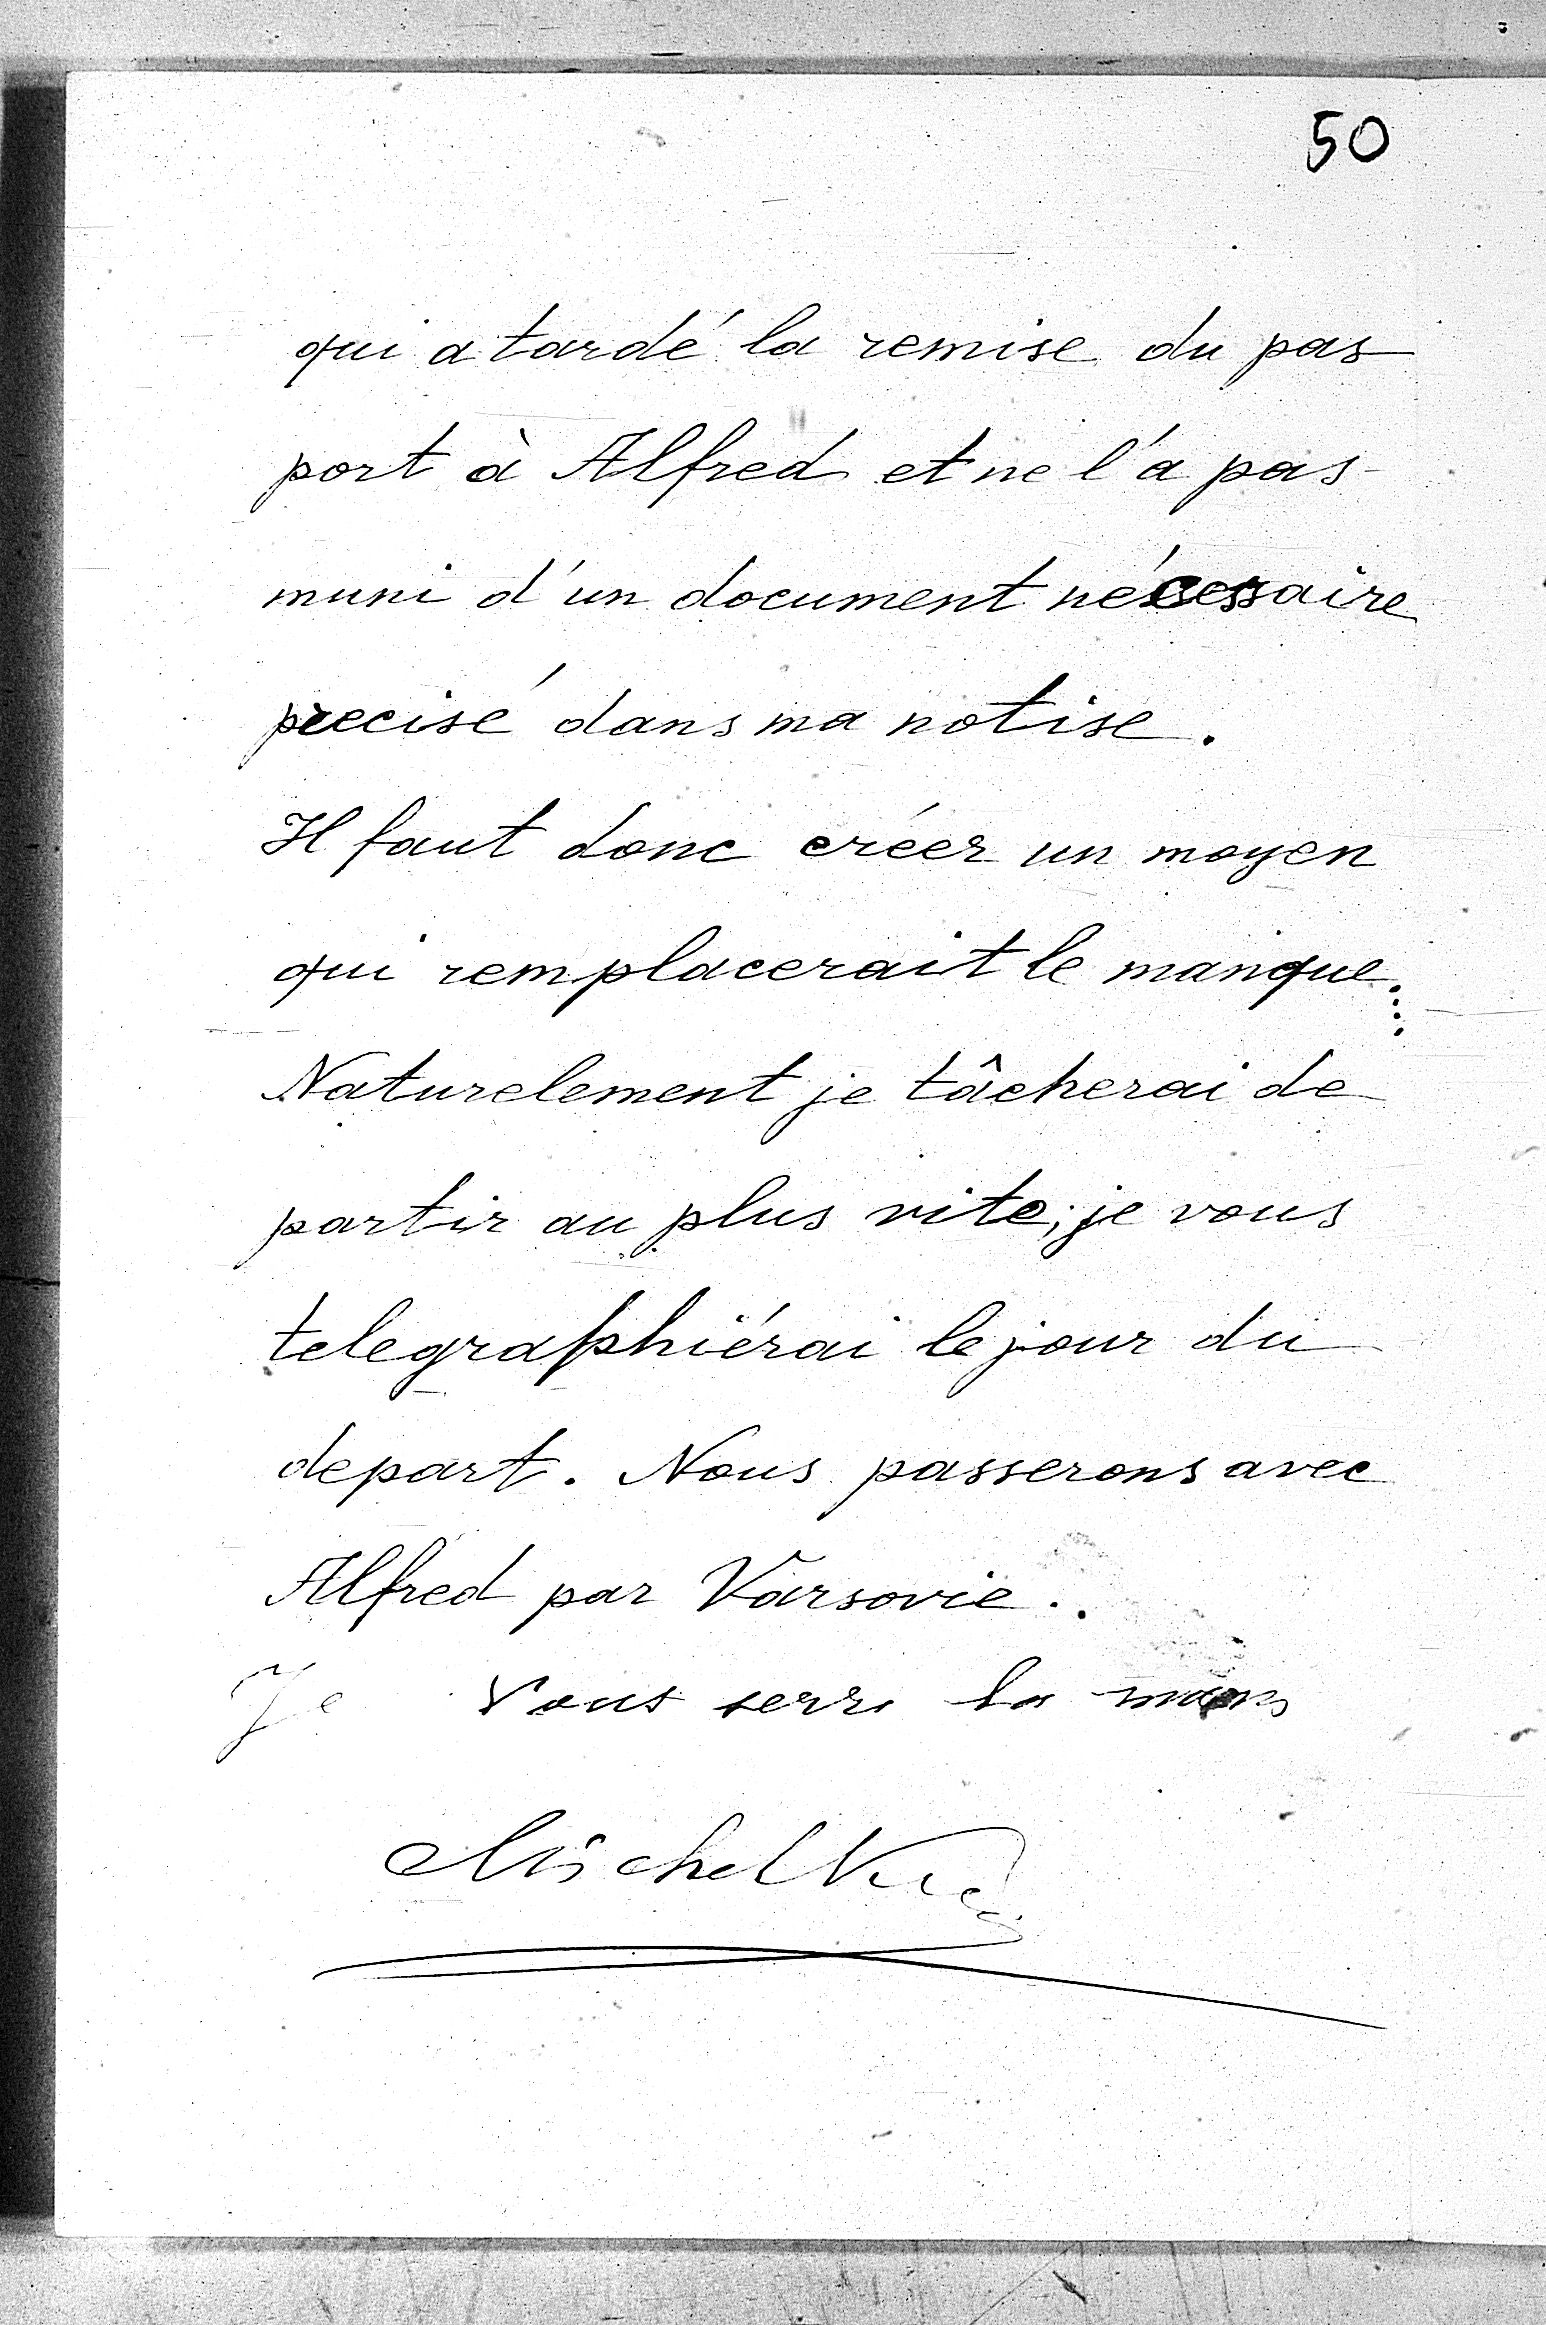 50
qui a tardé la remise du pas
port à Alfred et ne l'a pas
muni d'un document nécessaire
precisé dans ma notise.
Il faut donc créer un moyen
qui remplacerait le manque.
Naturelement je tâcherai de
partir au plus vite; je vous
telegraphiérai le jour du
depart. Nous passerons avec
Alfred par Varsovie.
Je vous serre la main
Mischel